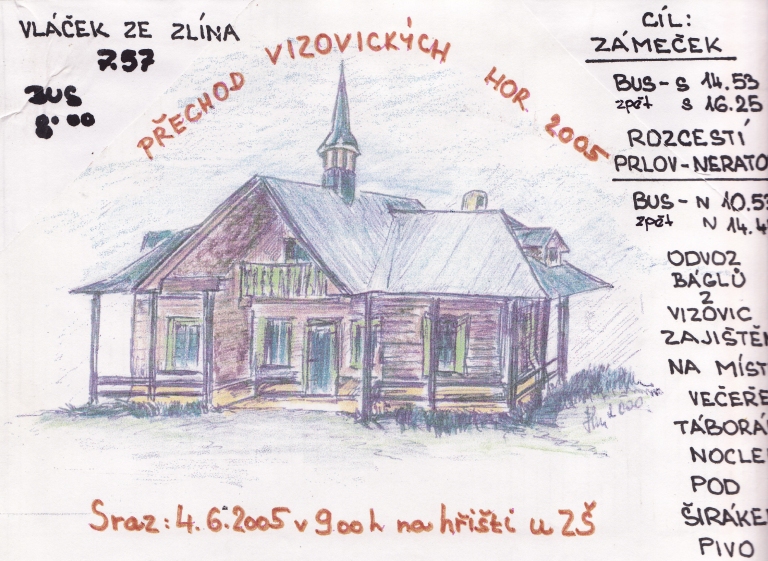 VLÁČEK ZE ZLÍNA
757
BUS
8.00
PŘECHOD VIZOVICKÝCH HOR 2005
CÍL:
ZÁMEČEK
BUS - S 14.53
zpět S 16.25
ROZCESTÍ
PRLOV-NERATO
BUS - N 10.53
zpět N 14.4
ODVOZ
BÁGLŮ
Z
VIZOVIC
ZAJIŠTĚN
NA MÍST
VEČEŘE
TÁBORÁ
NOCLE
POD
ŠIRÁKE
PIVO
Sraz: 4.6.2005 v 9.00 h na hřišti u ZŠ